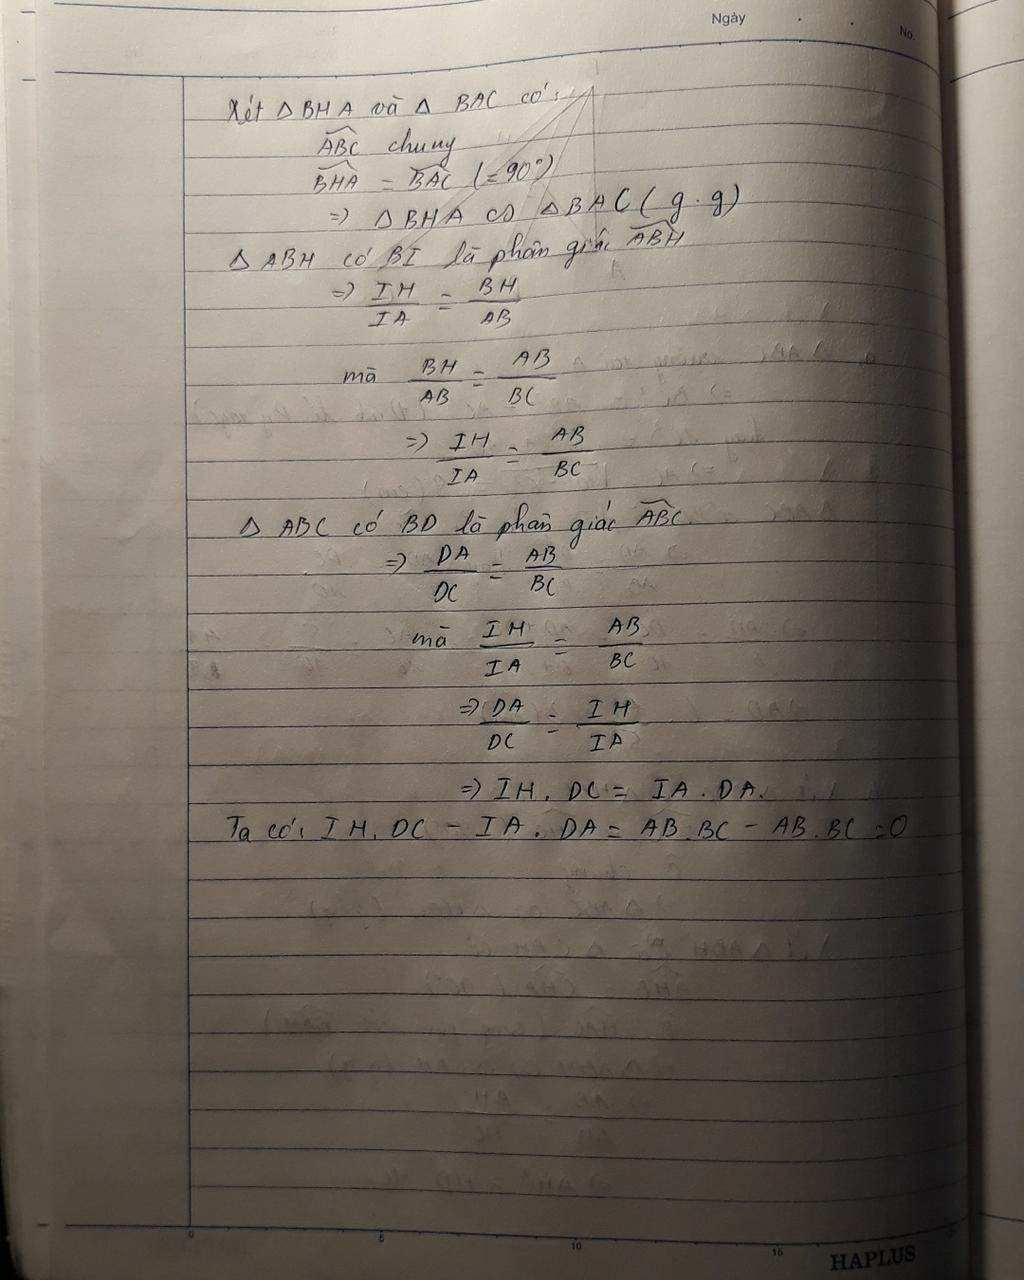 Ngày
No.
Xét Δ BHA và Δ BAC có:
ABC chung
BHA = BAC (= 90°)
=> Δ BHA ∽ Δ BAC (g.g)
Δ ABH có BI là phân giác ABH
=> IH/IA = BH/AB
mà BH/AB = AB/BC
=> IH/IA = AB/BC
Δ ABC có BD là phân giác ABC
=> DA/DC = AB/BC
mà IH/IA = AB/BC
=> DA/DC = IH/IA
=> IH. DC = IA. DA.
Ta có: IH. DC - IA. DA = AB.BC - AB.BC = 0
0 5 10 15
HAPLUS